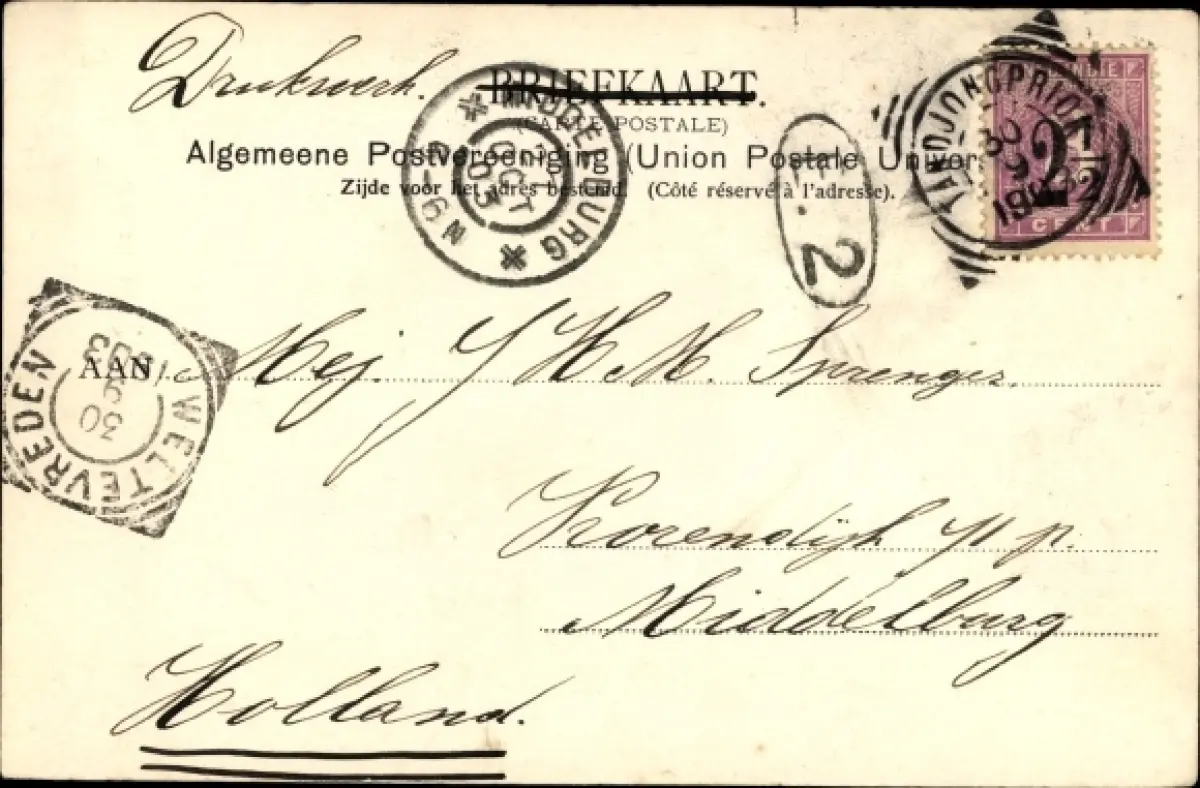 Drukwerk.
BRIEFKAART.
(CARTE POSTALE)
Algemeene Postvereeniging (Union Postale Univers
Zijde voor het adres bestemd. (Côté réservé à l'adresse).
MIDDELBURG
OCT
03
6-9 N
TANDJONGPRIOK
30
9
1903
INDIE
2 1/2
CENT
2
WELTEVREDEN
30
AAN
Mej. J H M. Sprenger.
Korendijk
Middelburg
Holland.